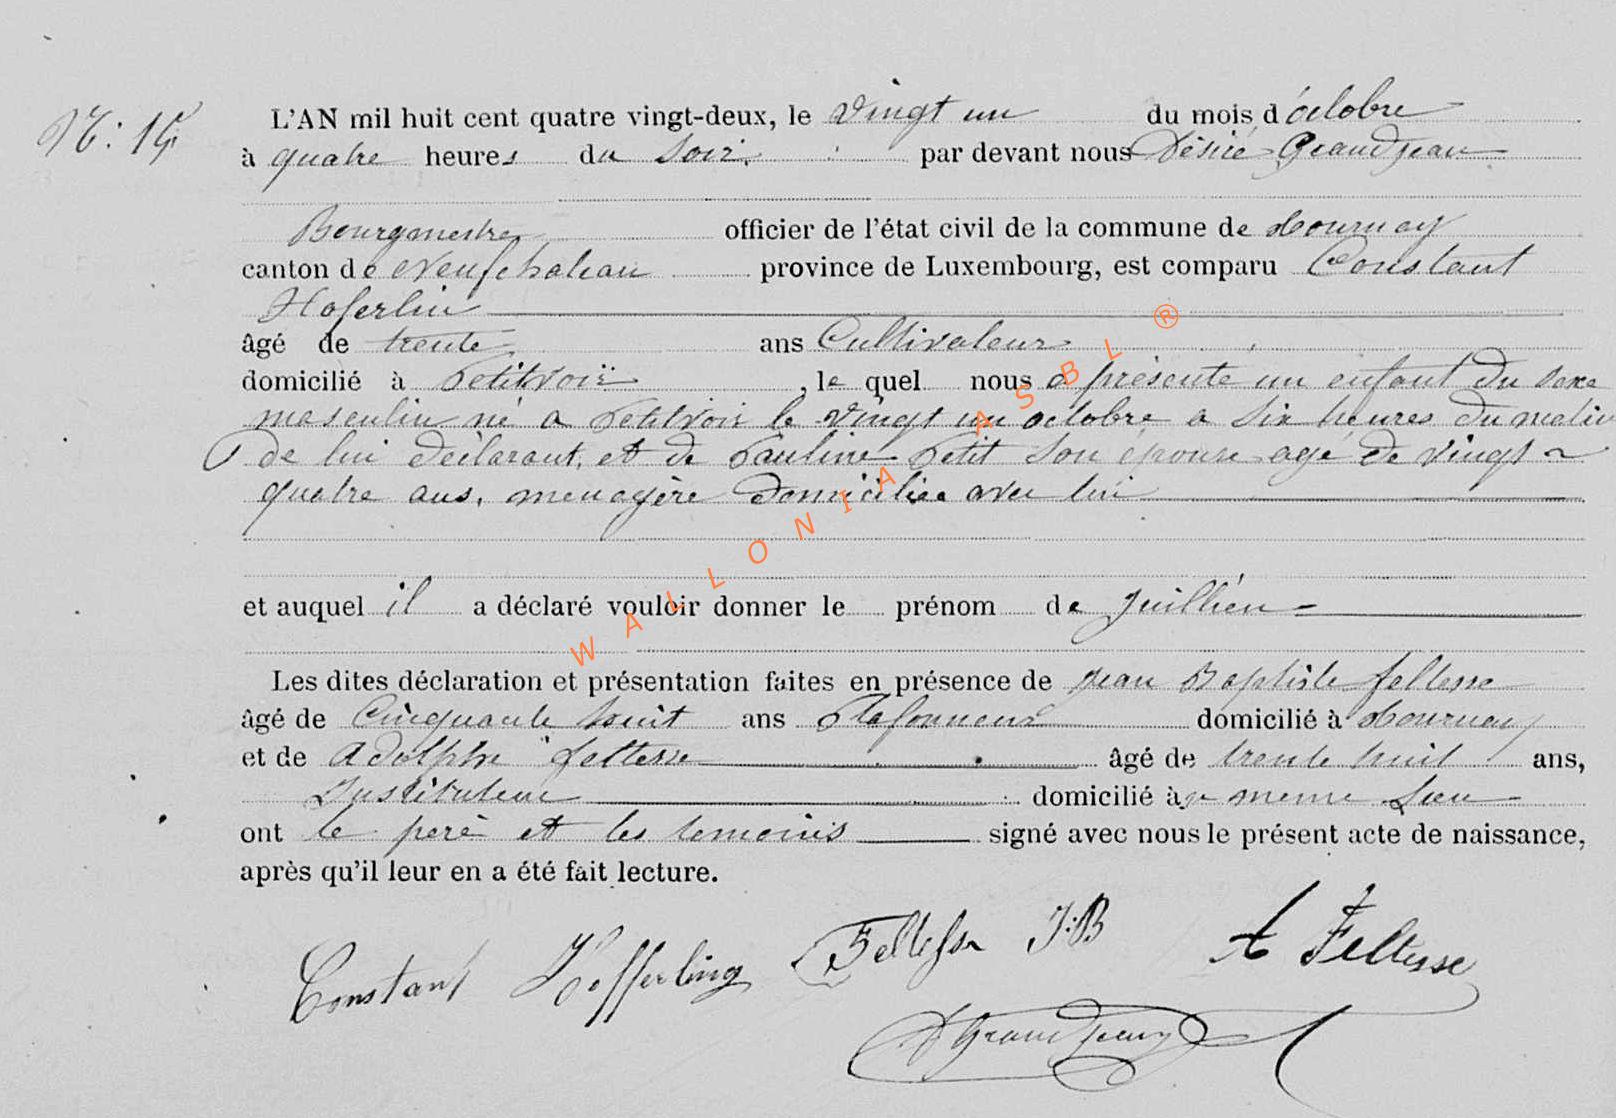 N: 14
L'AN mil huit cent quatre vingt-deux, le vingt un du mois d'octobre
à quatre heures du soir. par devant nous Désiré Grandjean
Bourgmestre officier de l'état civil de la commune de Tournay
canton de Neufchateau province de Luxembourg, est comparu Constant
Hoferlin
âgé de trente ans Cultivateur
domicilié à Petitvoir, le quel nous a présenté un enfant du sexe
masculin né a Petitvoir le vingt un octobre a six heures du matin
de lui déclarant, et de Pauline Petit son épouse agé de vingt
quatre ans, menagère domiciliée avec lui
et auquel il a déclaré vouloir donner le prénom de Juillien
Les dites déclaration et présentation faites en présence de Jean Baptiste feltesse
âgé de Cinquante huit ans Plafonneur domicilié à Tournay
et de Adolphe feltesse âgé de trente huit ans,
Instituteur domicilié à meme Lieu
ont le perè et les temoins signé avec nous le présent acte de naissance,
après qu'il leur en a été fait lecture.
Constant Hofferling Feltesse J:B A Feltesse
D Grandjean
WALLONIA ASBL ®